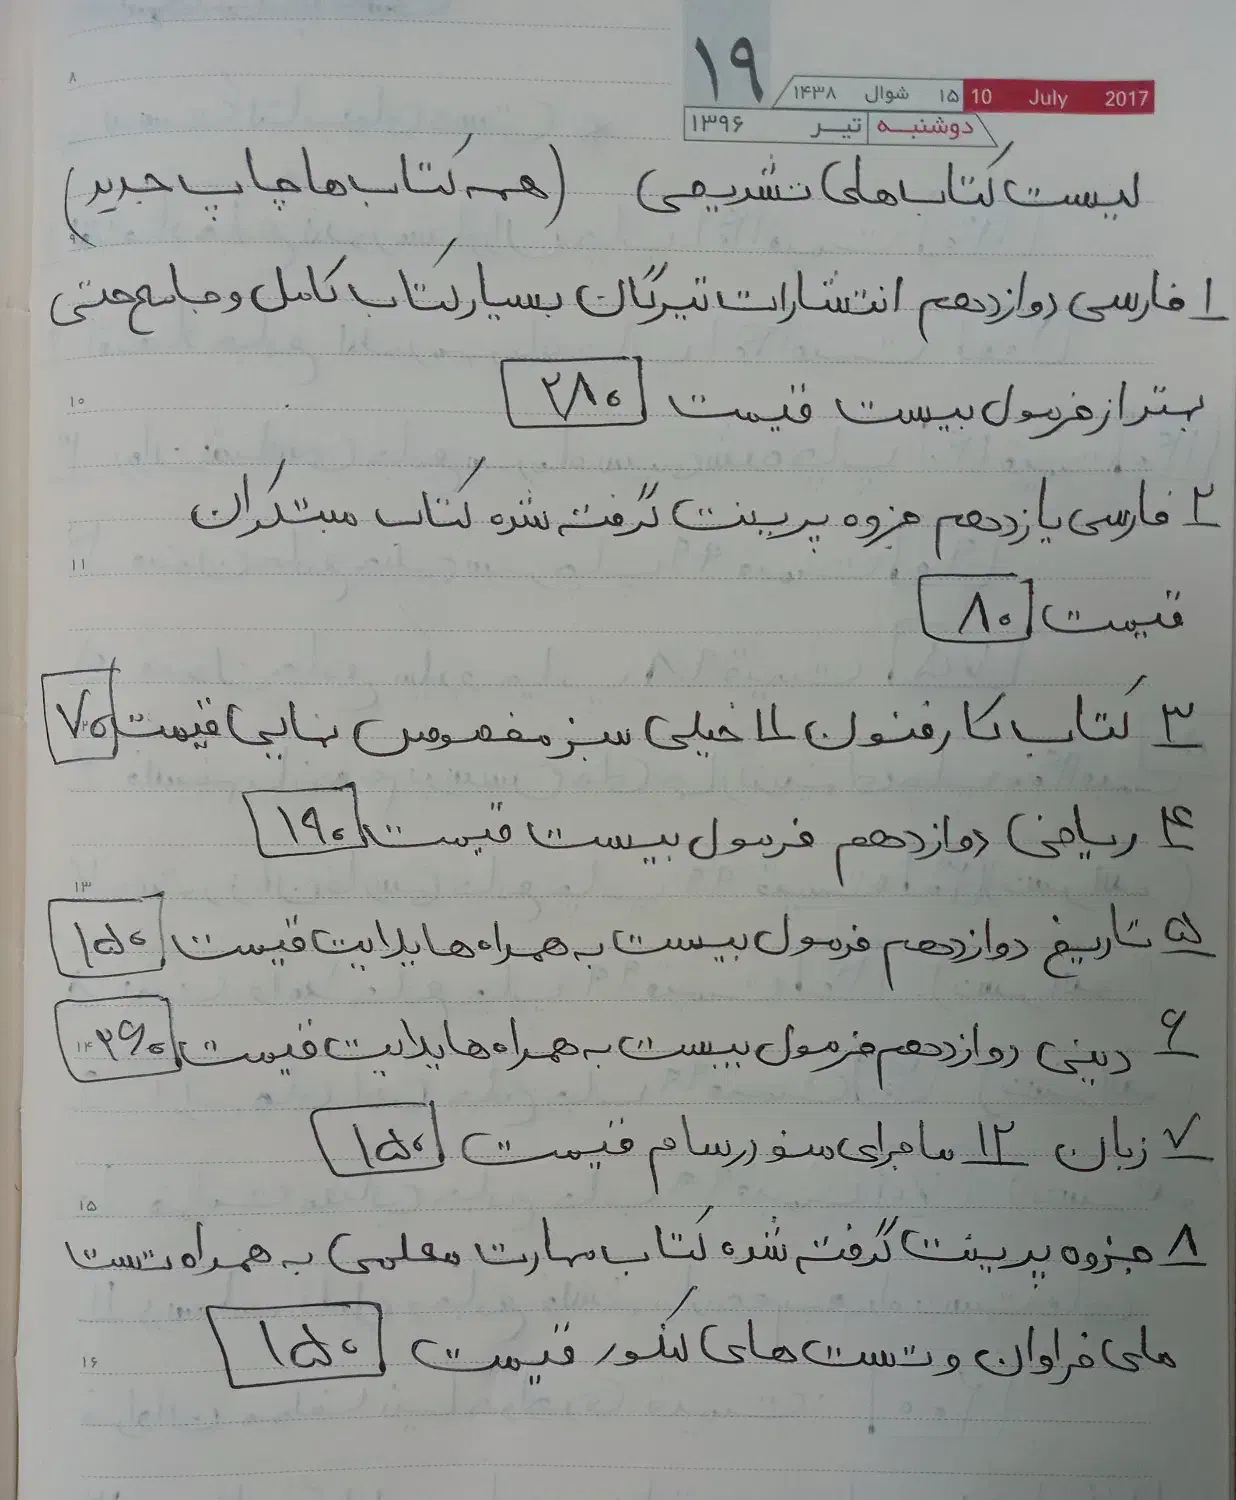 ۱۹
۱۵ شوال ۱۴۳۸ 10 July 2017
دوشنبه تیر ۱۳۹۶
لیست کتاب های تشریحی (همه کتاب ها چاپ جدید)
۱ فارسی دوازدهم انتشارات تیرگان بسیار کتاب کامل و جامع حتی
بهتر از فرمول بیست قیمت ۲۸۰
۲ فارسی یازدهم جزوه پرینت گرفته شده کتاب مبتکران
قیمت ۸۰
۳ کتاب کار فنون ۱۱ خیلی سبز مخصوص نهایی قیمت ۷۰
۴ ریاضی دوازدهم فرمول بیست قیمت ۱۹۰
۵ تاریخ دوازدهم فرمول بیست به همراه هایلایت قیمت ۱۵۰
۶ دینی دوازدهم فرمول بیست به همراه هایلایت قیمت ۲۶۰
۷ زبان ۱۲ ماجرای من و درسام قیمت ۱۵۰
۸ جزوه پرینت گرفته شده کتاب مهارت معلمی به همراه تست
های فراوان و تست های کنکور قیمت ۱۵۰
۸
۹
۱۰
۱۱
۱۳
۱۴
۱۵
۱۶